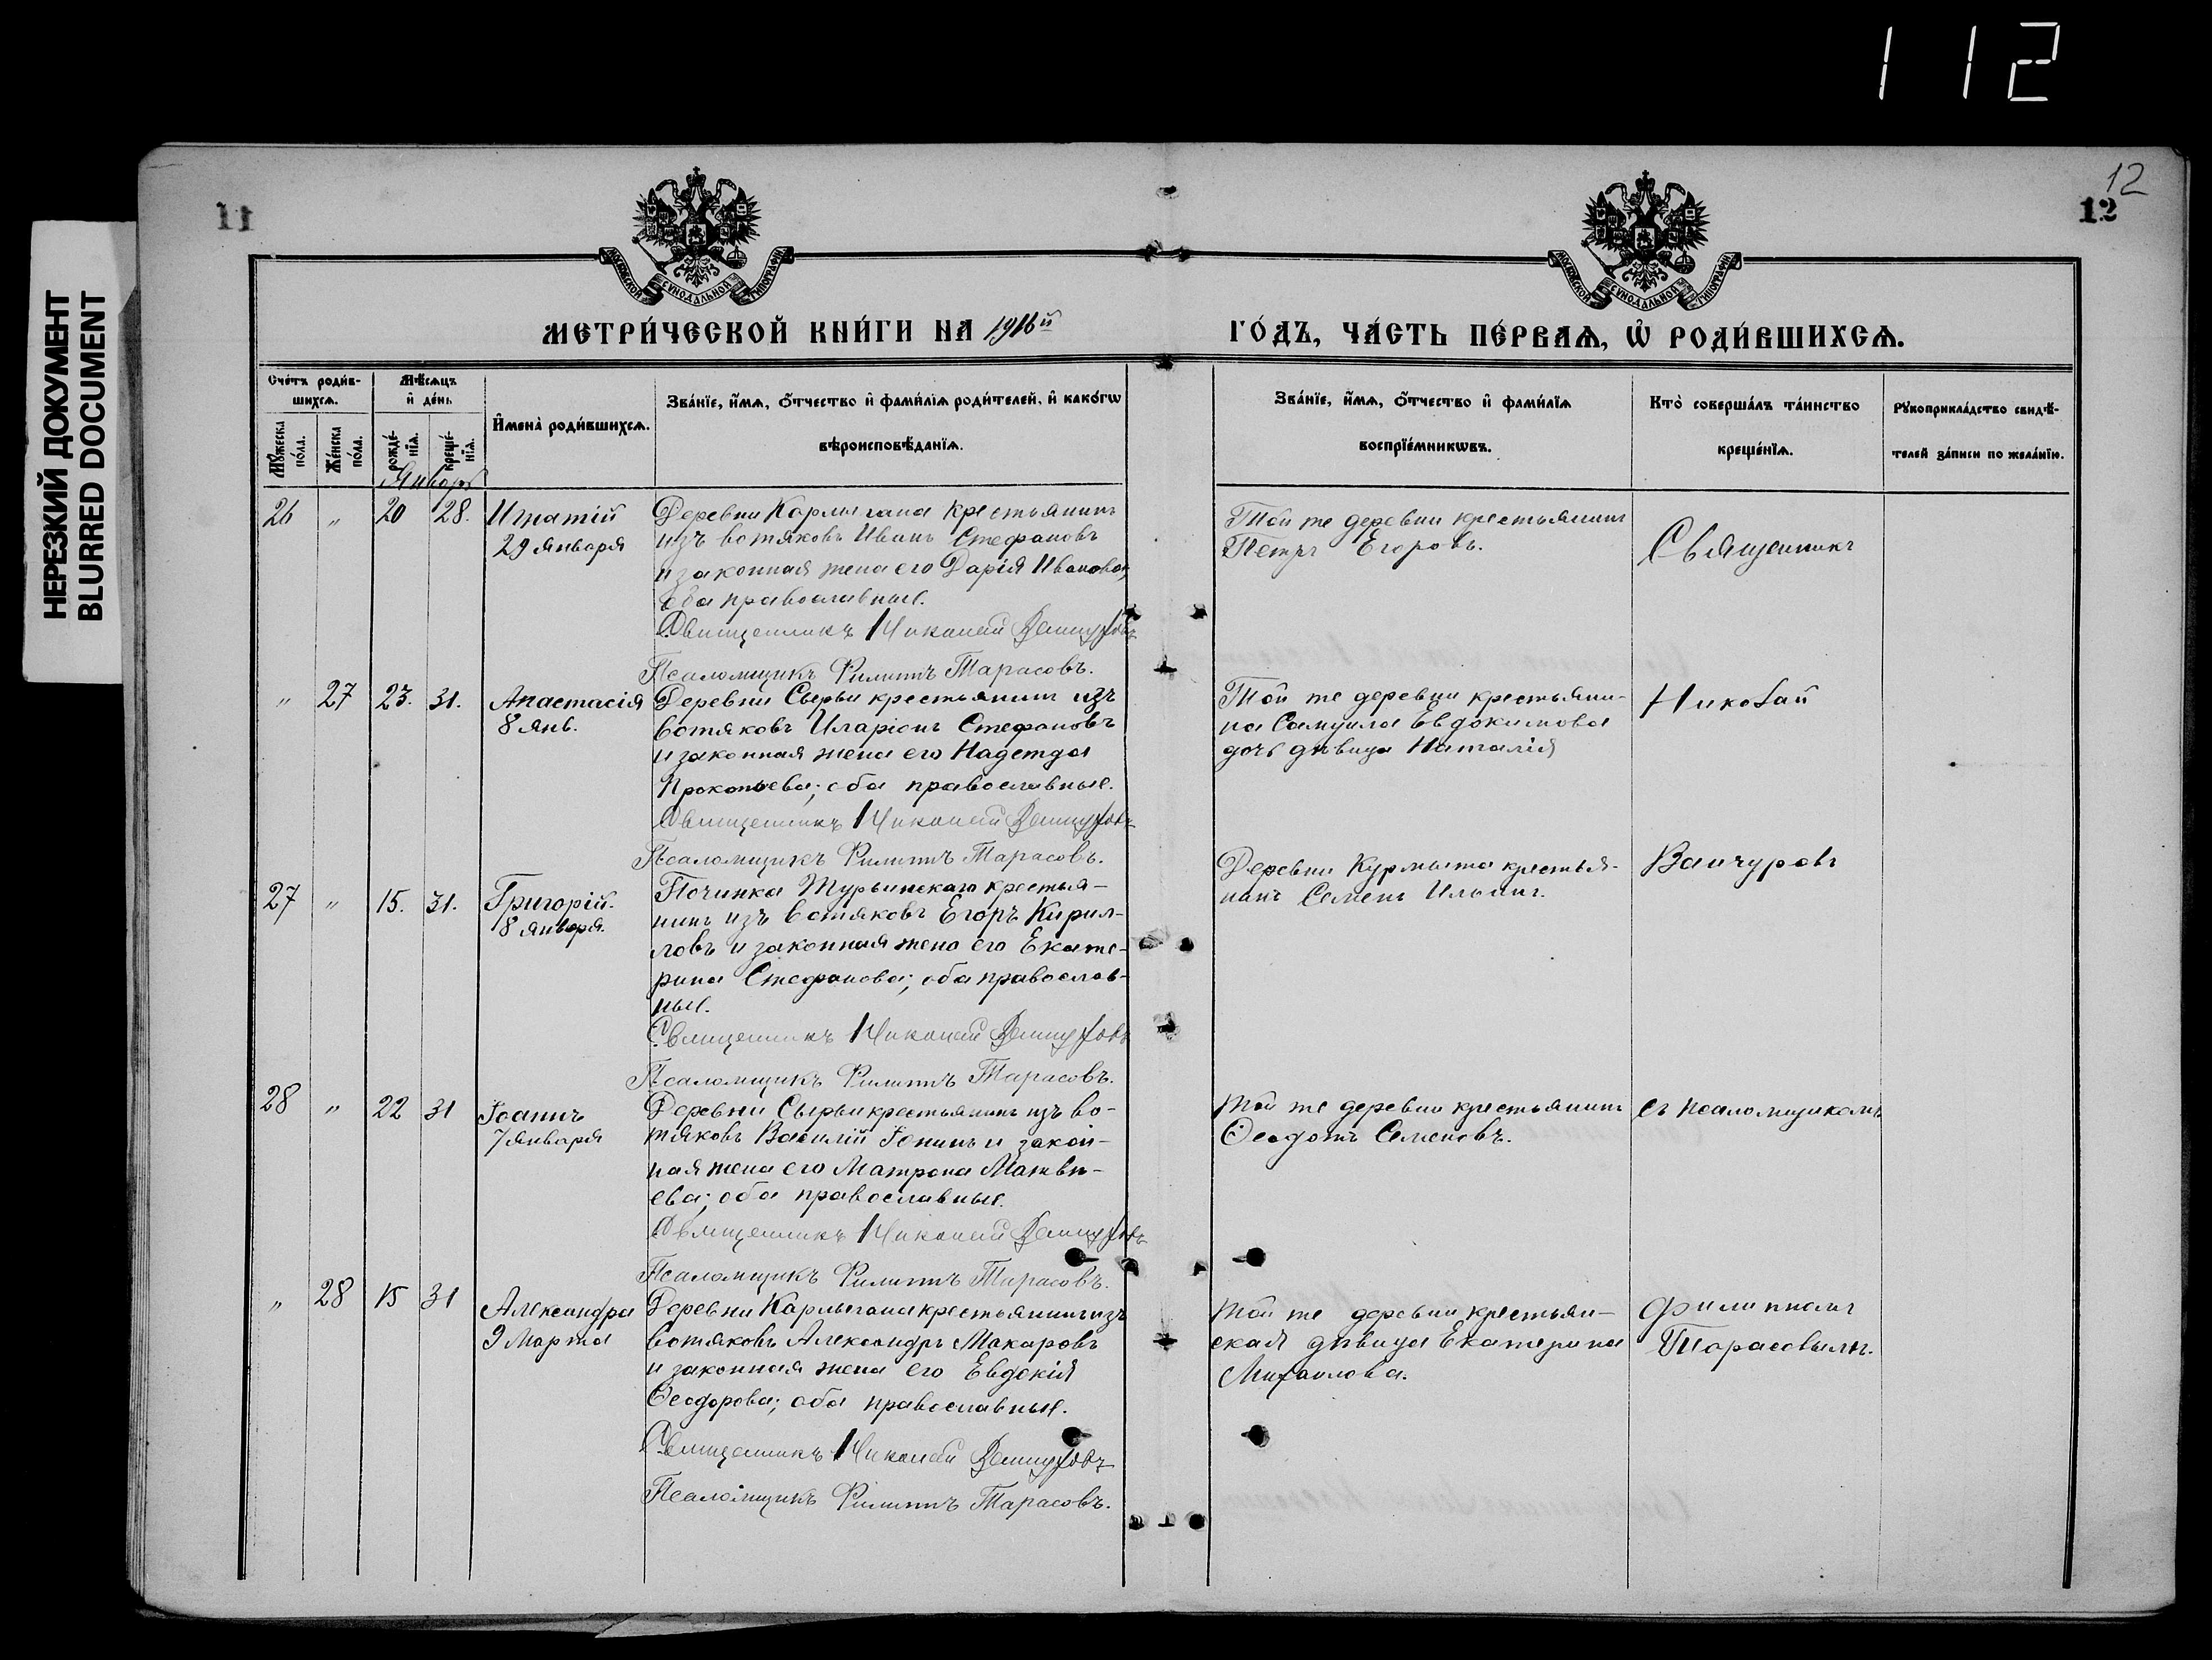 112
НЕРЕЗКИЙ ДОКУМЕНТ
BLURRED DOCUMENT
11
12
12
МОСКОВСКОЙ СѴНОДАЛЬНОЙ ТИПОГРАФІИ
МОСКОВСКОЙ СѴНОДАЛЬНОЙ ТИПОГРАФІИ
МЕТРИ́ЧЕСКОЙ КНИ́ГИ НА 1916й
ГО́ДЪ, ЧА́СТЬ ПЕ́РВАѦ, Ѡ҆ РОДИ́ВШИХСѦ.
Сче́тъ роди́в-
шихсѧ.
Мꙋжеска по́ла.
Же́нска по́ла.
Мѣ́сѧцъ
и҆ де́нь.
рожде́-
нїѧ.
креще́-
нїѧ.
И҆мена̀ роди́вшихсѧ.
Зва́нїе, и҆́мѧ, о҆́тчество и҆ фами́лїѧ роди́телей, и҆ како́гѡ
вѣроисповѣ́данїѧ.
Зва́нїе, и҆́мѧ, о҆́тчество и҆ фами́лїѧ
воспрїе́мникѡвъ.
Кто̀ соверша́лъ та́инство
креще́нїѧ.
Рꙋкоприкла́дство свидѣ́-
телей за́писи по жела́нїю.
Январь
26 " 20 28. Игнатій
29 января
Деревни Карлыгана крестьянинъ
изъ вотяковъ Иванъ Стефановъ
и законная жена его Дарія Иванова,
оба православные.
Священникъ Николай Вайчуровъ
Псаломщикъ Филиппъ Тарасовъ.
Той же деревни крестьянинъ
Петръ Егоровъ.
Священникъ
" 27 23. 31. Анастасія
8 янв.
Деревни Сырьи крестьянинъ изъ
вотяковъ Иларіонъ Стефановъ
и законная жена его Надежда
Прокопьева; оба православные.
Священникъ Николай Вайчуровъ
Псаломщикъ Филиппъ Тарасовъ.
Той же деревни крестьяни-
на Самуила Евдокимова
дочь дѣвица Наталія
Николай
27 " 15. 31. Григорій.
18 января.
Починка Турьинскаго крестья-
нинъ изъ вотяковъ Егоръ Кирил-
ловъ и законная жена его Екате-
рина Стефанова; оба православ-
ные.
Священникъ Николай Вайчуровъ
Псаломщикъ Филиппъ Тарасовъ.
Деревни Курмыша крестья-
нинъ Семенъ Ильинъ.
Вайчуровъ
28 " 22 31 Іоаннъ
7 января
Деревни Сырьи крестьянинъ изъ во-
тяковъ Василій Іонинъ и закон-
ная жена его Матрона Матвѣ-
ева; оба православные.
Священникъ Николай Вайчуровъ
Псаломщикъ Филиппъ Тарасовъ.
Той же деревни крестьянинъ
Ѳеодотъ Семеновъ.
съ псаломщикомъ
" 28 15 31 Александра
9 Марта
Деревни Карлыгана крестьянинъ изъ
вотяковъ Александръ Макаровъ
и законная жена его Евдокія
Ѳеодорова; оба православные.
Священникъ Николай Вайчуровъ
Псаломщикъ Филиппъ Тарасовъ.
Той же деревни крестьян-
ская дѣвица Екатерина
Михаилова.
Филиппомъ
Тарасовымъ.